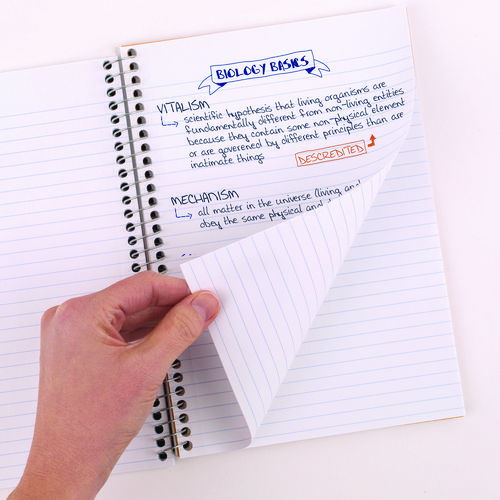 BIOLOGY BASICS
VITALISM
scientific hypothesis that living organisms are
fundamentally different from non-living entities
because they contain some non-physical element
or are goverened by different principles than are
inatimate things
DESCREDITED
MECHANISM
all matter in the universe (living, and
obey the same physical and